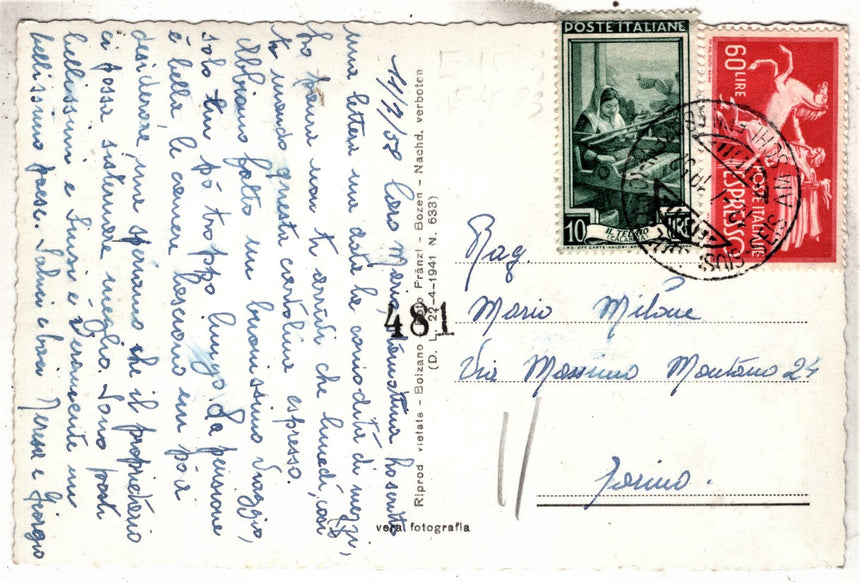 11/7/52 Caro Mario, stamattina ho scritto
una lettera ma data la comodità di mezzi,
ho paura non ti arrivi che lunedì, così
ti mando questa cartolina espresso.
Abbiamo fatto un buonissimo viaggio,
solo un pò troppo lungo. La pensione
è bella le camere lasciano un pò a
desiderare, ma speriamo che il proprietario
ci possa sistemare meglio. Sono posti
bellissimi e Siusi è veramente un
bellissimo paese. Saluti e baci Teresa e Giorgio
Riprod. vietata - Bolzano Foto Fränzl - Bozen - Nachd. verboten
(D. L. 22-4-1941 N. 633)
481
vera fotografia
POSTE ITALIANE
10 LIRE
IL TELAIO
60 LIRE
POSTE ITALIANE
ESPRESSO
SIUSI
Rag.
Mario Milone
Via Massimo Montano 24
Torino.